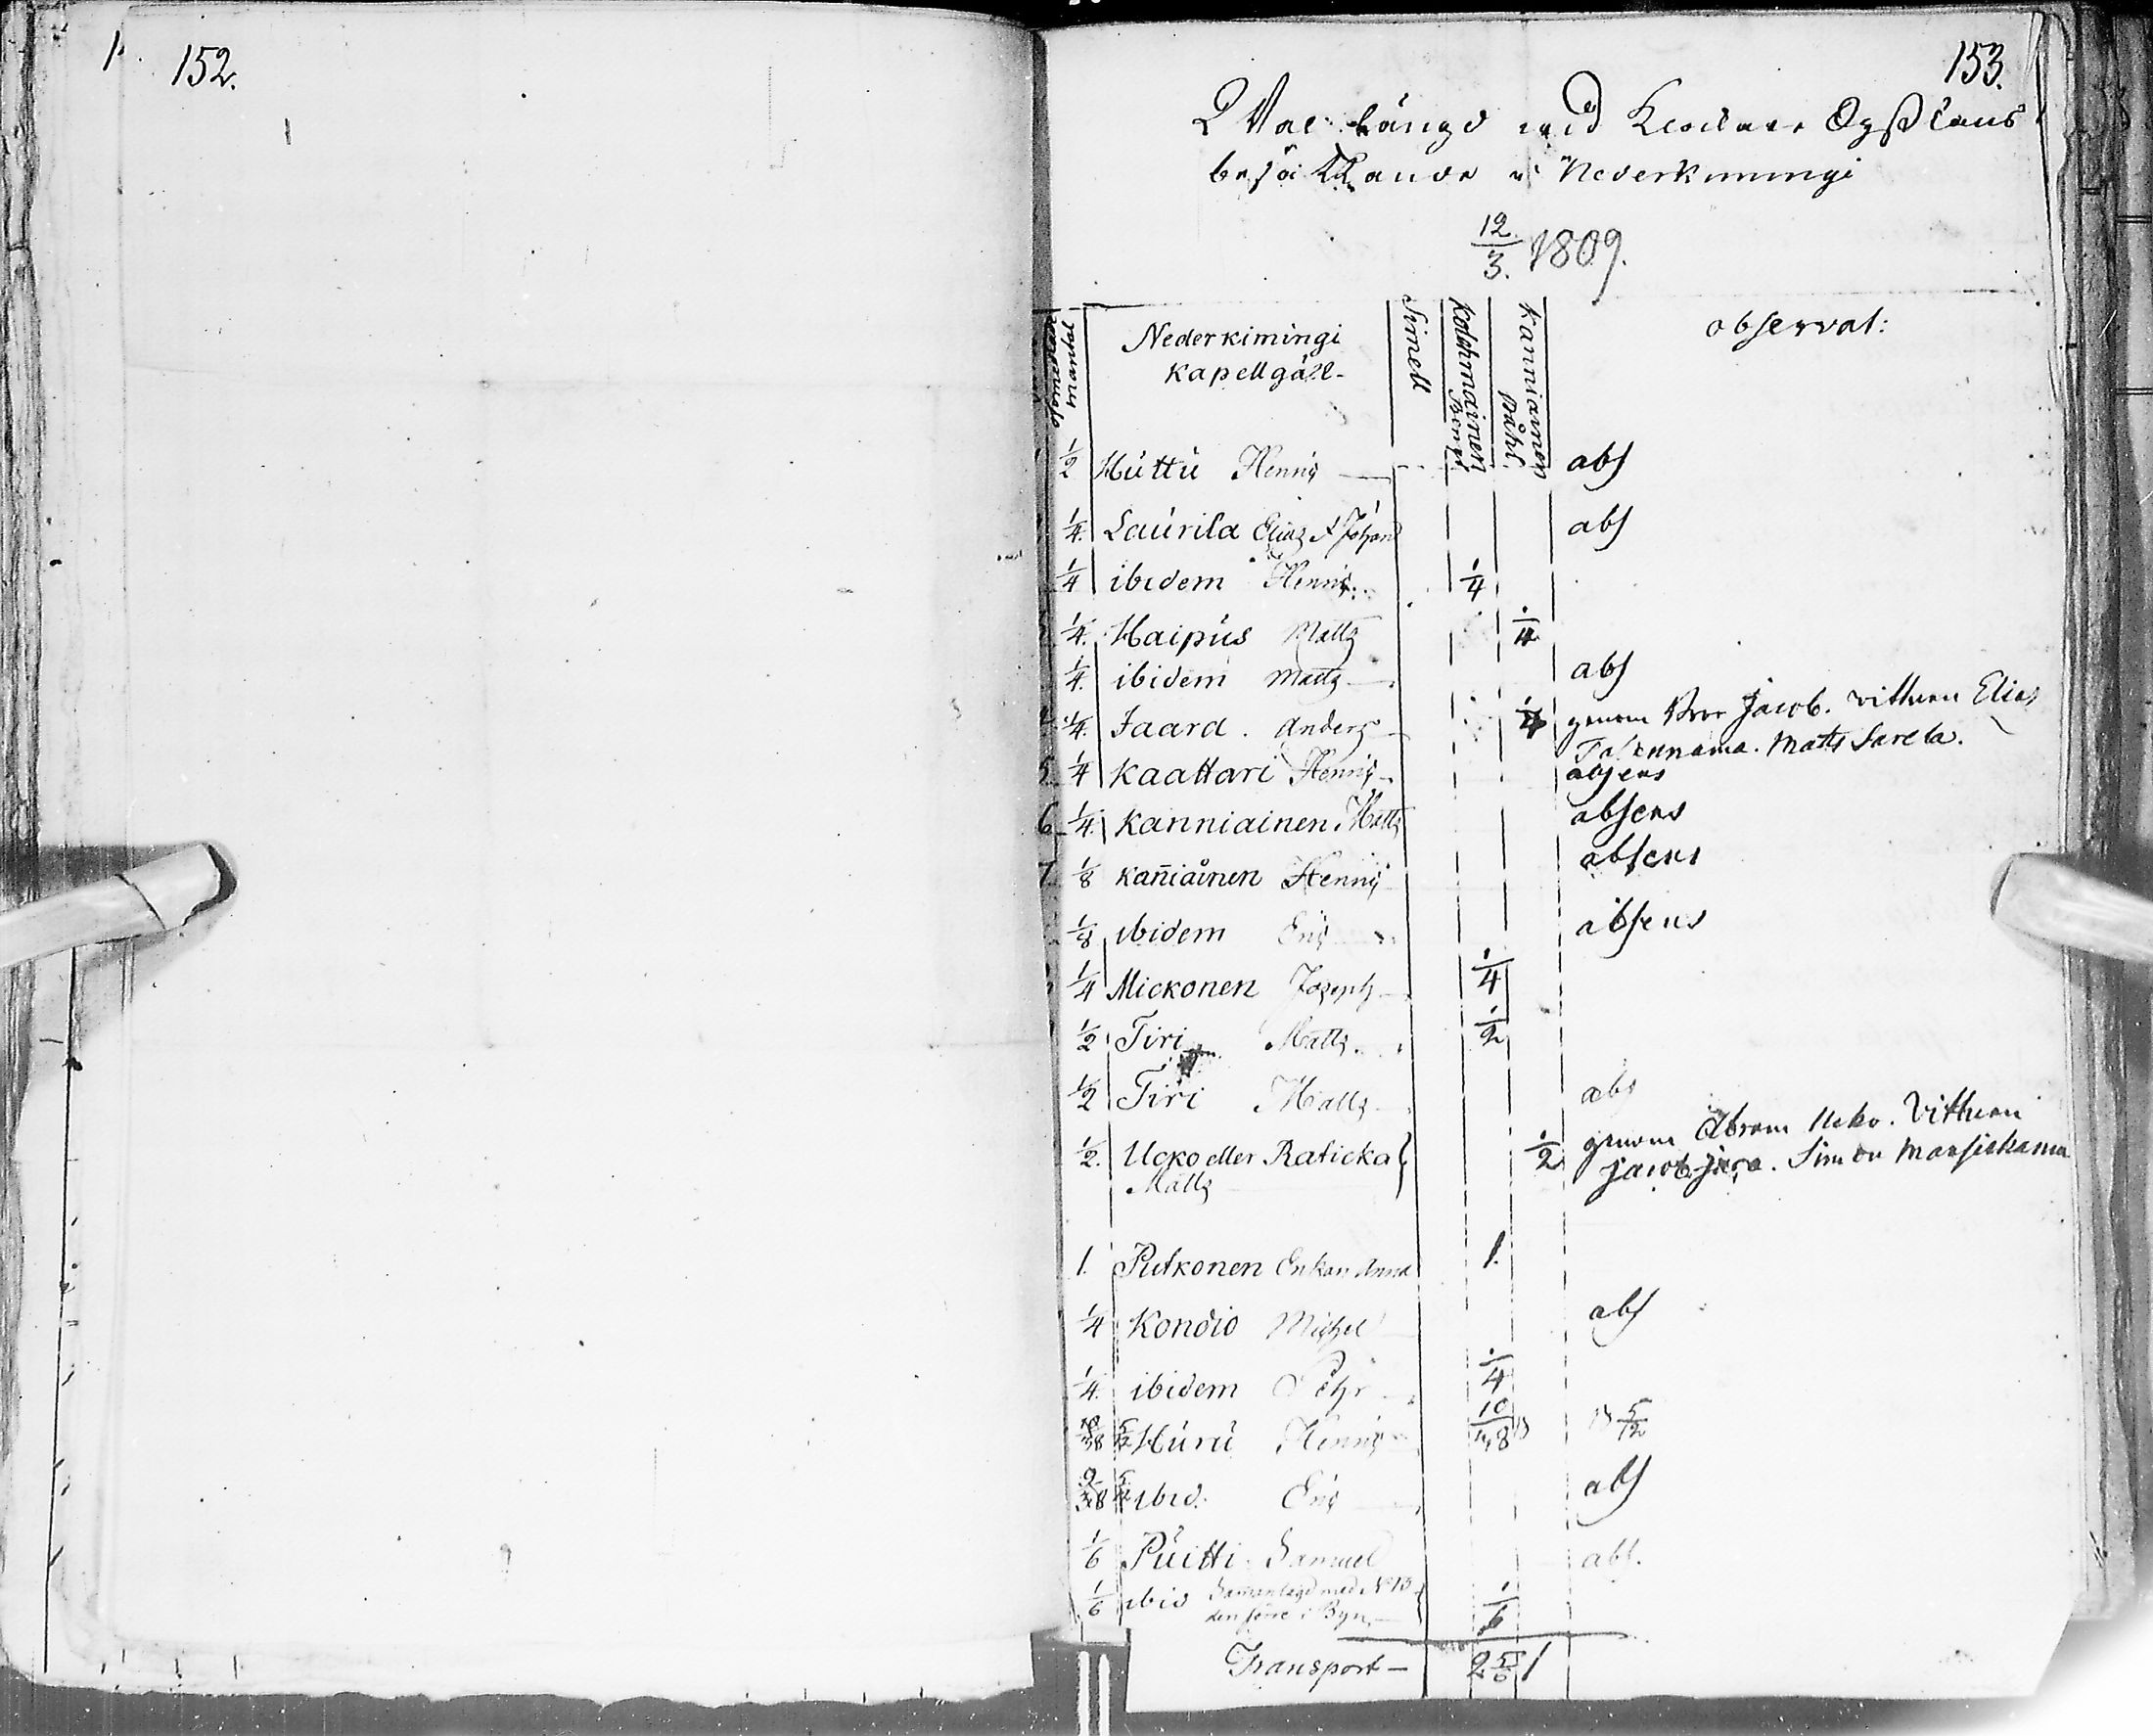 1. 152.
153.
Val längd vid Klockare
besättande i Nederkimingi
12/3. 1809.
mantal
Nederkimingi
Kapellgäll-
Simell
Kolehmainen
Bengt.
Kanniainen
Påhl.
observat:
1/2 Huttu Henric — abs
1/4. Laurila Elias & Johan abs
1/4 ibidem Henric 1/4
1/4. Haipus Matts 1/4
1/4. ibidem Matts — abs
1/4. Jaara. Anders — 1/4 genom Bror Jacob. vittnen Elias
Matts Sarela.
5 1/4 Kaattari Henric — absens
6 1/4. Kanniainen Matts absens
7. 1/8 Kañiainen Henric absens
1/8 ibidem Eric absens
1/4 Mickonen Joseph — 1/4
1/2 Tiri Matts. 1/2
1/2 Tiri Matts abs
1/2. Ucko eller Raticka } 1/2 genom Abram Ucko. Vittnen
Matts Jacob Jara. Simon
1. Putkonen Enkan Anna 1.
1/4 Kondio Michel abs
1/4. ibidem Pehr 1/4
10/48 5/12 Huru Henric 10/48 5/12
ibid. Eric abs
1/6 Puitti Samuel abs.
1/6 ibid Samanlagd med N 13
den förre i Byn — 1/6
Transport — 2 5/6 1